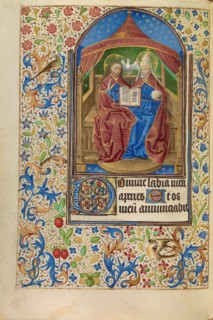 Domine labia mea
aperies Et os
meū annunciabit